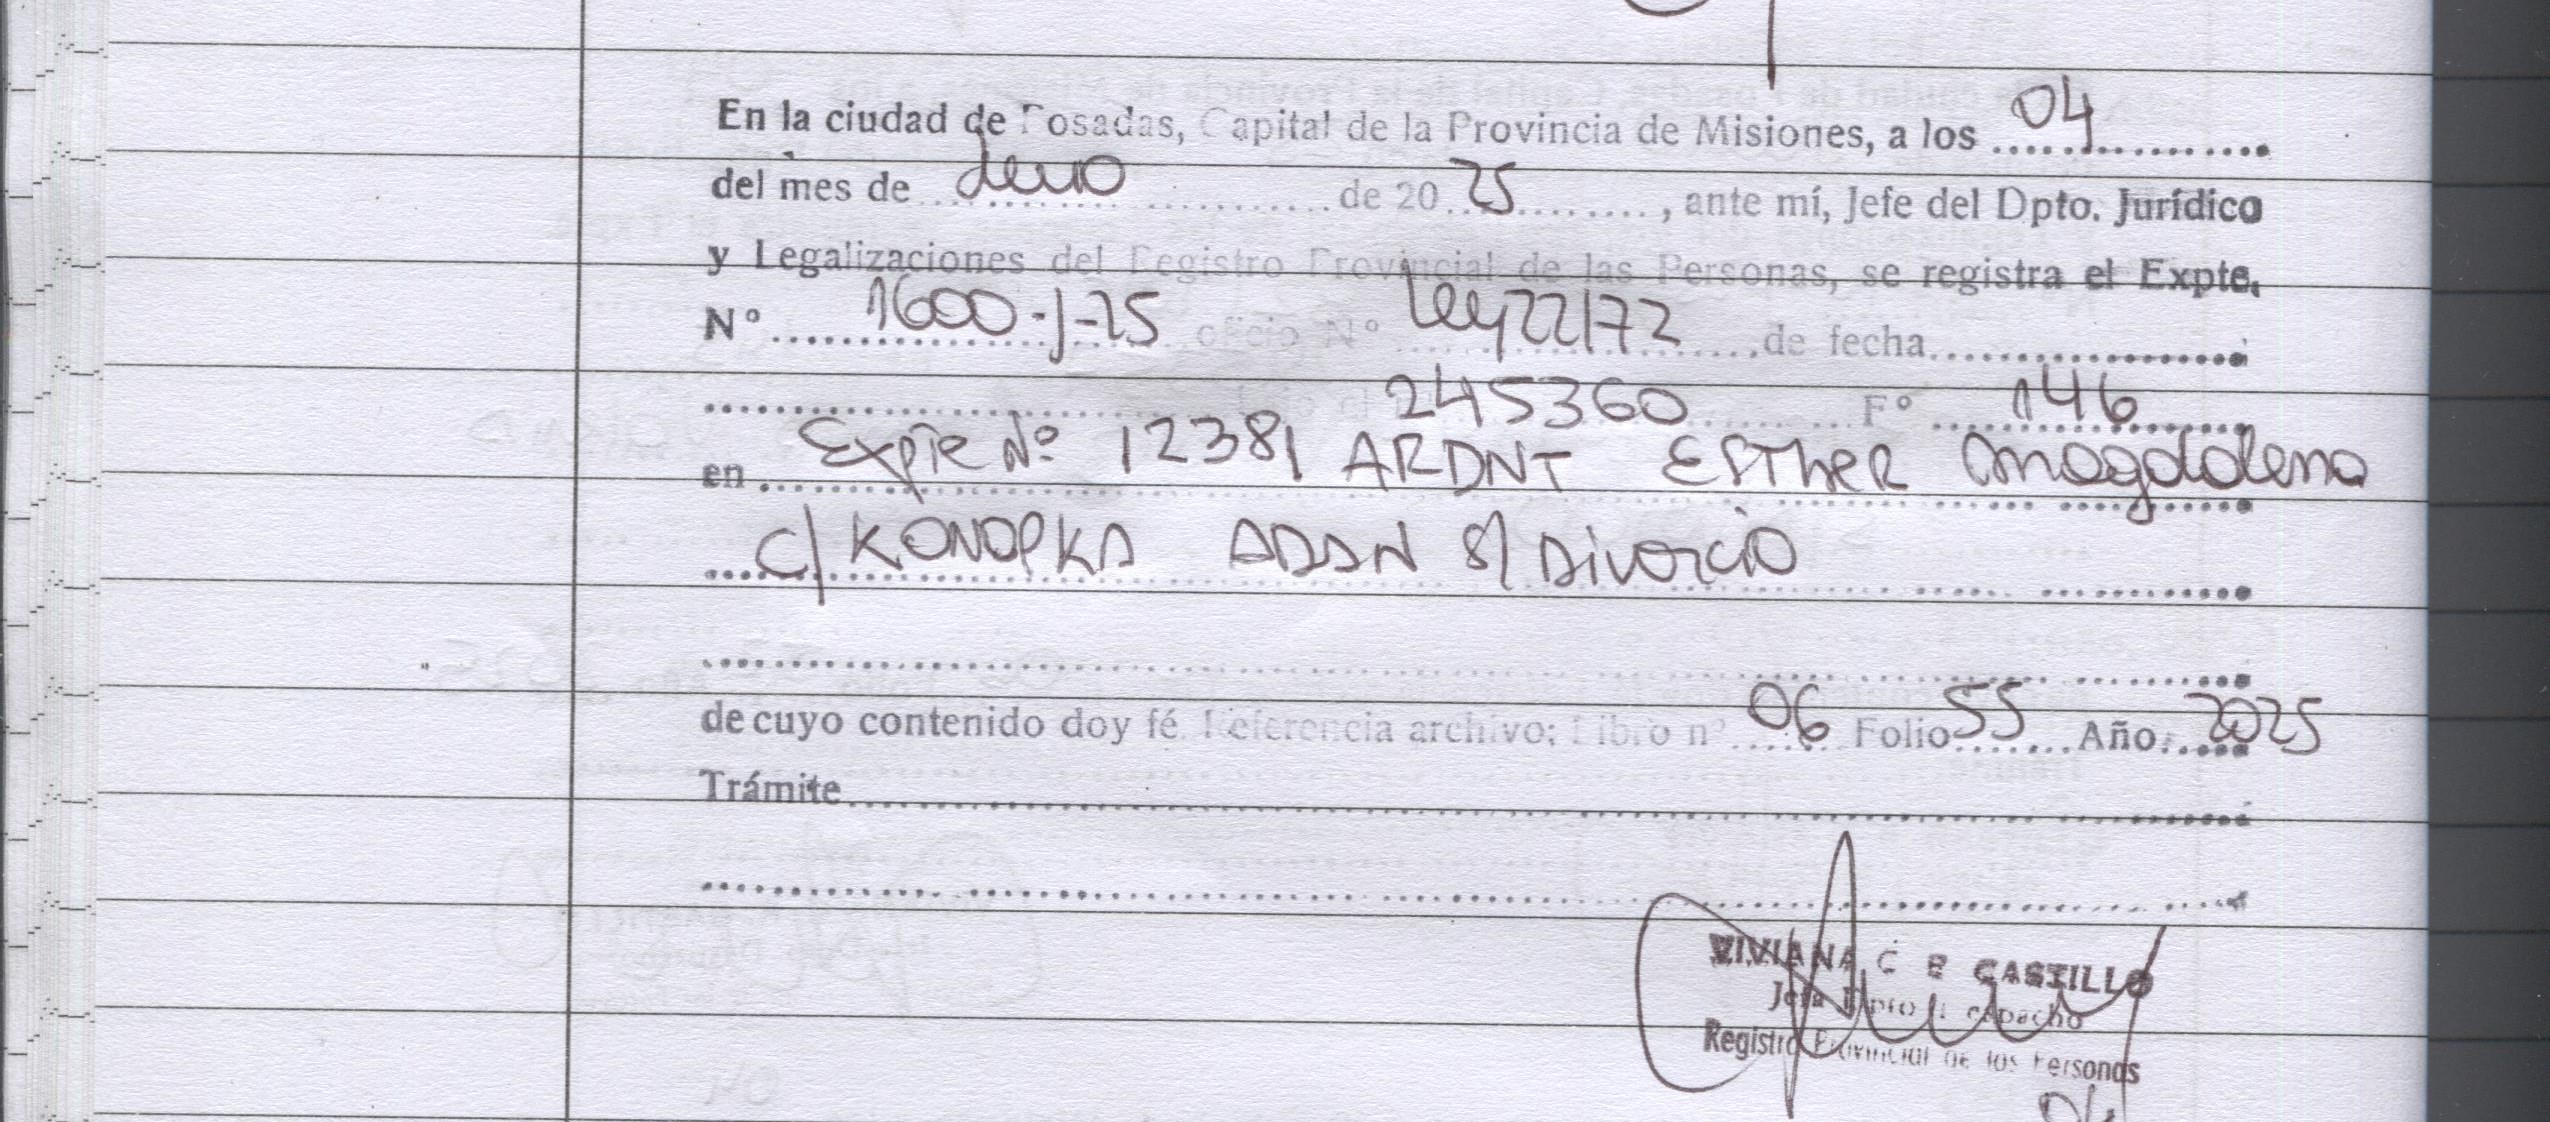 En la ciudad de Posadas, Capital de la Provincia de Misiones, a los 04
del mes de de 20 25, ante mí, Jefe del Dpto. Jurídico
y Legalizaciones del Registro Provincial de las Personas, se registra el Expte.
Nº 1600-J-25 oficio Nº Ley 22172 de fecha
245360 Fº 146
en Expte Nº 12381 ARDNT ESTHER Magdalena
c/ KONOPKA ADAN S/ Divorcio
de cuyo contenido doy fé. Referencia archivo: Libro nº 06 Folio 55 Año 2025
Trámite
VIVIANA C E CASTILLO
Jefa Dpto Despacho
Registro Provincial de las Personas